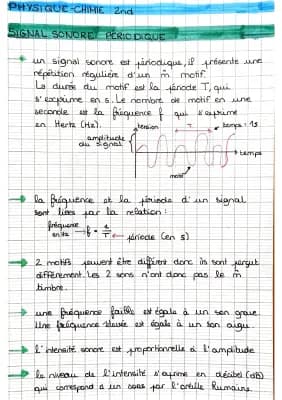 PHYSIQUE-CHIMIE 2nd
SIGNAL SONORE PÉRIODIQUE
un signal sonore est périodique, il présente une
répétition régulière d'un m̂ motif.
La durée du motif est la période T, qui
s'exprime en s. Le nombre de motif en une
seconde est la fréquence f qui s'exprime
en Hertz (Hz).
tension
T
temps: 1s
amplitude
du signal
temps
motif
la fréquence et la période d'un signal
sont liées par la relation:
fréquence
en Hz → f = 1/T ← période (en s)
2 motifs peuvent être différent donc ils sont perçut
différemment. Les 2 sons n'ont donc pas le m̂
timbre.
une fréquence faible est égale à un son grave
Une fréquence élevée est égale à un son aigu.
l'intensité sonore est proportionnelle à l'amplitude
le niveau de l'intensité s'exprime en décibel (dB)
qui correspond a un sons par l'oreille humaine.